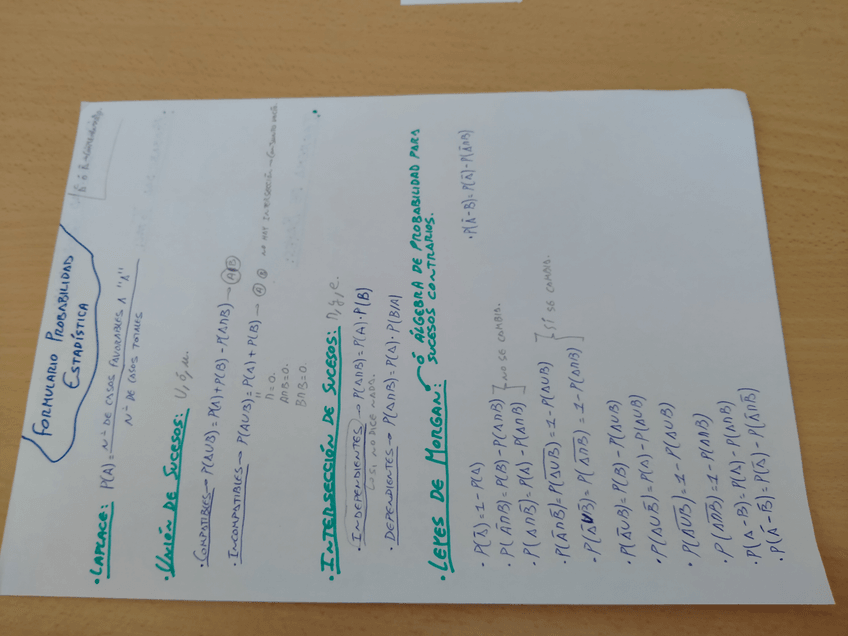 FORMULARIO PROBABILIDAD
ESTADÍSTICA
• LAPLACE: P(A) = Nº DE CASOS FAVORABLES A "A"
Nº DE CASOS TOTALES
• UNIÓN DE SUCESOS: U, ó, u.
• COMPATIBLES → P(A∪B) = P(A) + P(B) - P(A∩B) → A B
• INCOMPATIBLES → P(A∪B) = P(A) + P(B) → A B NO HAY INTERSECCIÓN
∩ = 0.
A∩B = 0.
B∩B = 0.
• INTERSECCIÓN DE SUCESOS: ∩, y, e.
• INDEPENDIENTES → P(A∩B) = P(A) · P(B)
NO DICE NADA.
• DEPENDIENTES → P(A∩B) = P(A) · P(B/A)
• LEYES DE MORGAN: ó ÁLGEBRA DE PROBABILIDAD PARA
SUCESOS CONTRARIOS.
• P(A̅) = 1 - P(A) • P(A̅-B) = P(A̅) - P(A̅∩B)
• P(A̅∩B) = P(B) - P(A∩B) ] NO SE CAMBIA.
• P(A∩B̅) = P(A) - P(A∩B)
• P(A̅∩B̅) = P(A̅∪̅B̅) = 1 - P(A∪B) ] SÍ SE CAMBIA.
• P(A̅∪B̅) = P(A̅∩̅B̅) = 1 - P(A∩B)
• P(A̅∪B) = P(B) - P(A∪B)
• P(A∪B̅) = P(A) - P(A∪B)
• P(A̅∪̅B̅) = 1 - P(A∪B)
• P(A̅∩̅B̅) = 1 - P(A∩B)
• P(A-B) = P(A) - P(A∩B)
• P(A̅-B̅) = P(A̅) - P(A̅∩B̅)